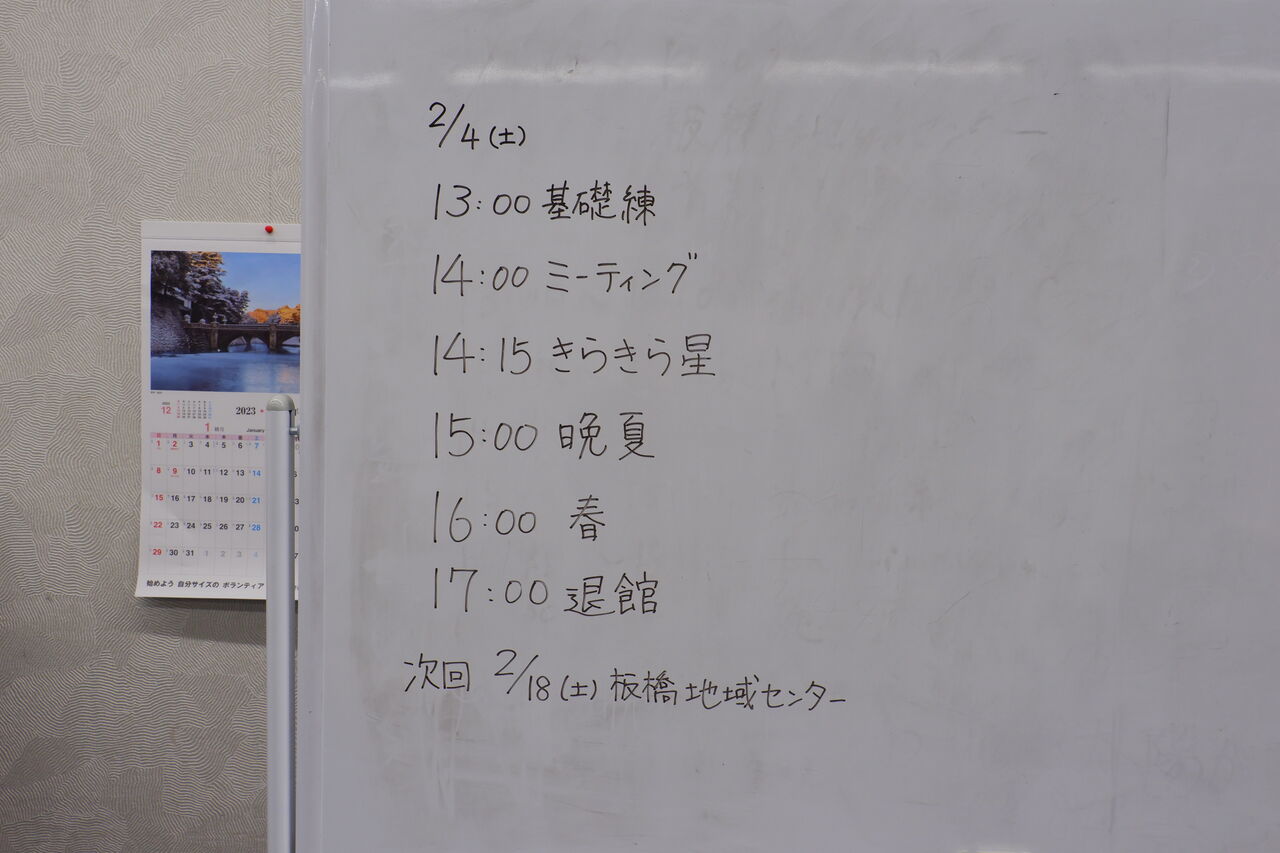 2/4(土)
13:00 基礎練
14:00 ミーティング
14:15 きらきら星
15:00 晩夏
16:00 春
17:00 退館
次回 2/18(土) 板橋地域センター
12
2023
1 睦月 January
日 月 火 水 木 金 土
1 2 3 4 5 6 7
8 9 10 11 12 13 14
15 16 17 18 19 20 21
22 23 24 25 26 27 28
29 30 31 1 2 3 4
始めよう 自分サイズの ボランティア